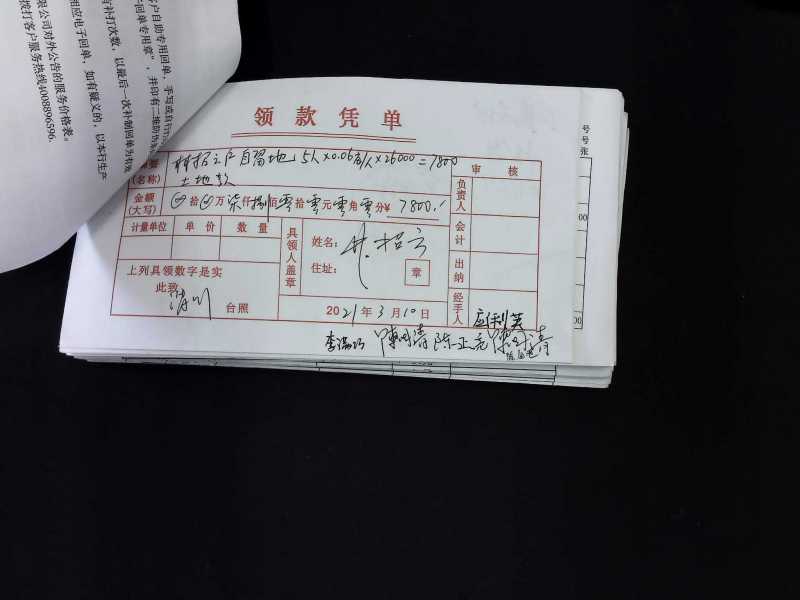 客户自助专用回单，手写或自行打
回单专用章"，并印有二维防伪
有补打次数，以最后一次补制回单为有效
相应电子回单，如有疑义的，以本行生产
限公司对外公告的服务价格表。
拨打客户服务热线4008896596.
领款凭单
摘要
(名称)
林招云户自留地，5人×0.06亩/人×26000=7800
土地款
审核
金额
(大写)
拾 万柒仟捌佰零拾零元零角零分¥ 7800.-
负责人
计量单位 单价 数量
具领人盖章
姓名：林招云
住址：
章
会计
上列具领数字是实
此致
台照
出纳
2021年3月10日
经手人
陈正亮
号 号 张
00
00